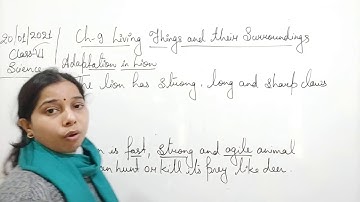 20/01/2021
Class-VI
Science
Ch-9 Living Things and their Surroundings
Adaptation in Lion
The lion has strong, long and sharp claws
is fast, strong and agile animal
an hunt or kill its prey like deer.